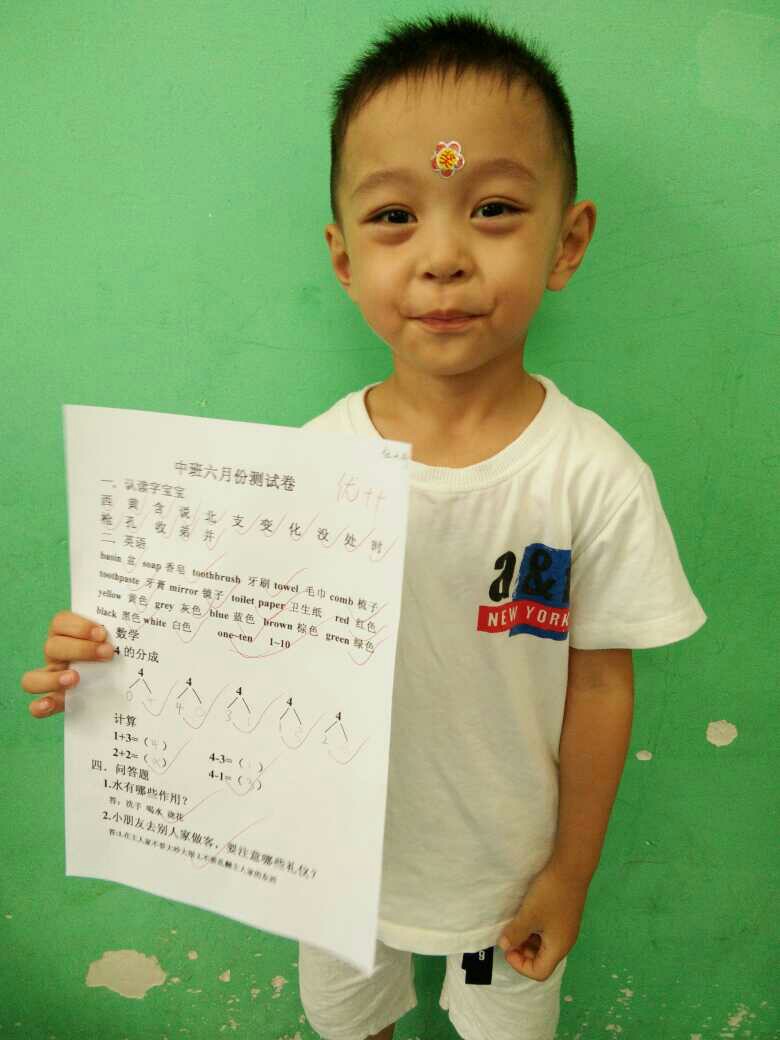 中班六月份测试卷
优++
一. 认读字宝宝
西 黄 含 说 北 支 变 化 没 处 时
枪 孔 收 弟 并
二. 英语
basin 盆 soap 香皂 toothbrush 牙刷 towel 毛巾 comb 梳子
toothpaste 牙膏 mirror 镜子 toilet paper 卫生纸 red 红色
yellow 黄色 grey 灰色 blue 蓝色 brown 棕色 green 绿色
black 黑色 white 白色 one~ten 1~10
数学
4 的分成
4 4 4 4 4
0 4 0 3 1 2
计算
1+3=(4) 4-3=( )
2+2=( ) 4-1=(3)
四. 问答题
1.水有哪些作用?
答: 洗手 喝水 浇花
2.小朋友去别人家做客, 要注意哪些礼仪?
答:1.在主人家不要大吵大闹 2.不要乱翻主人家的东西
a&
NEW YORK